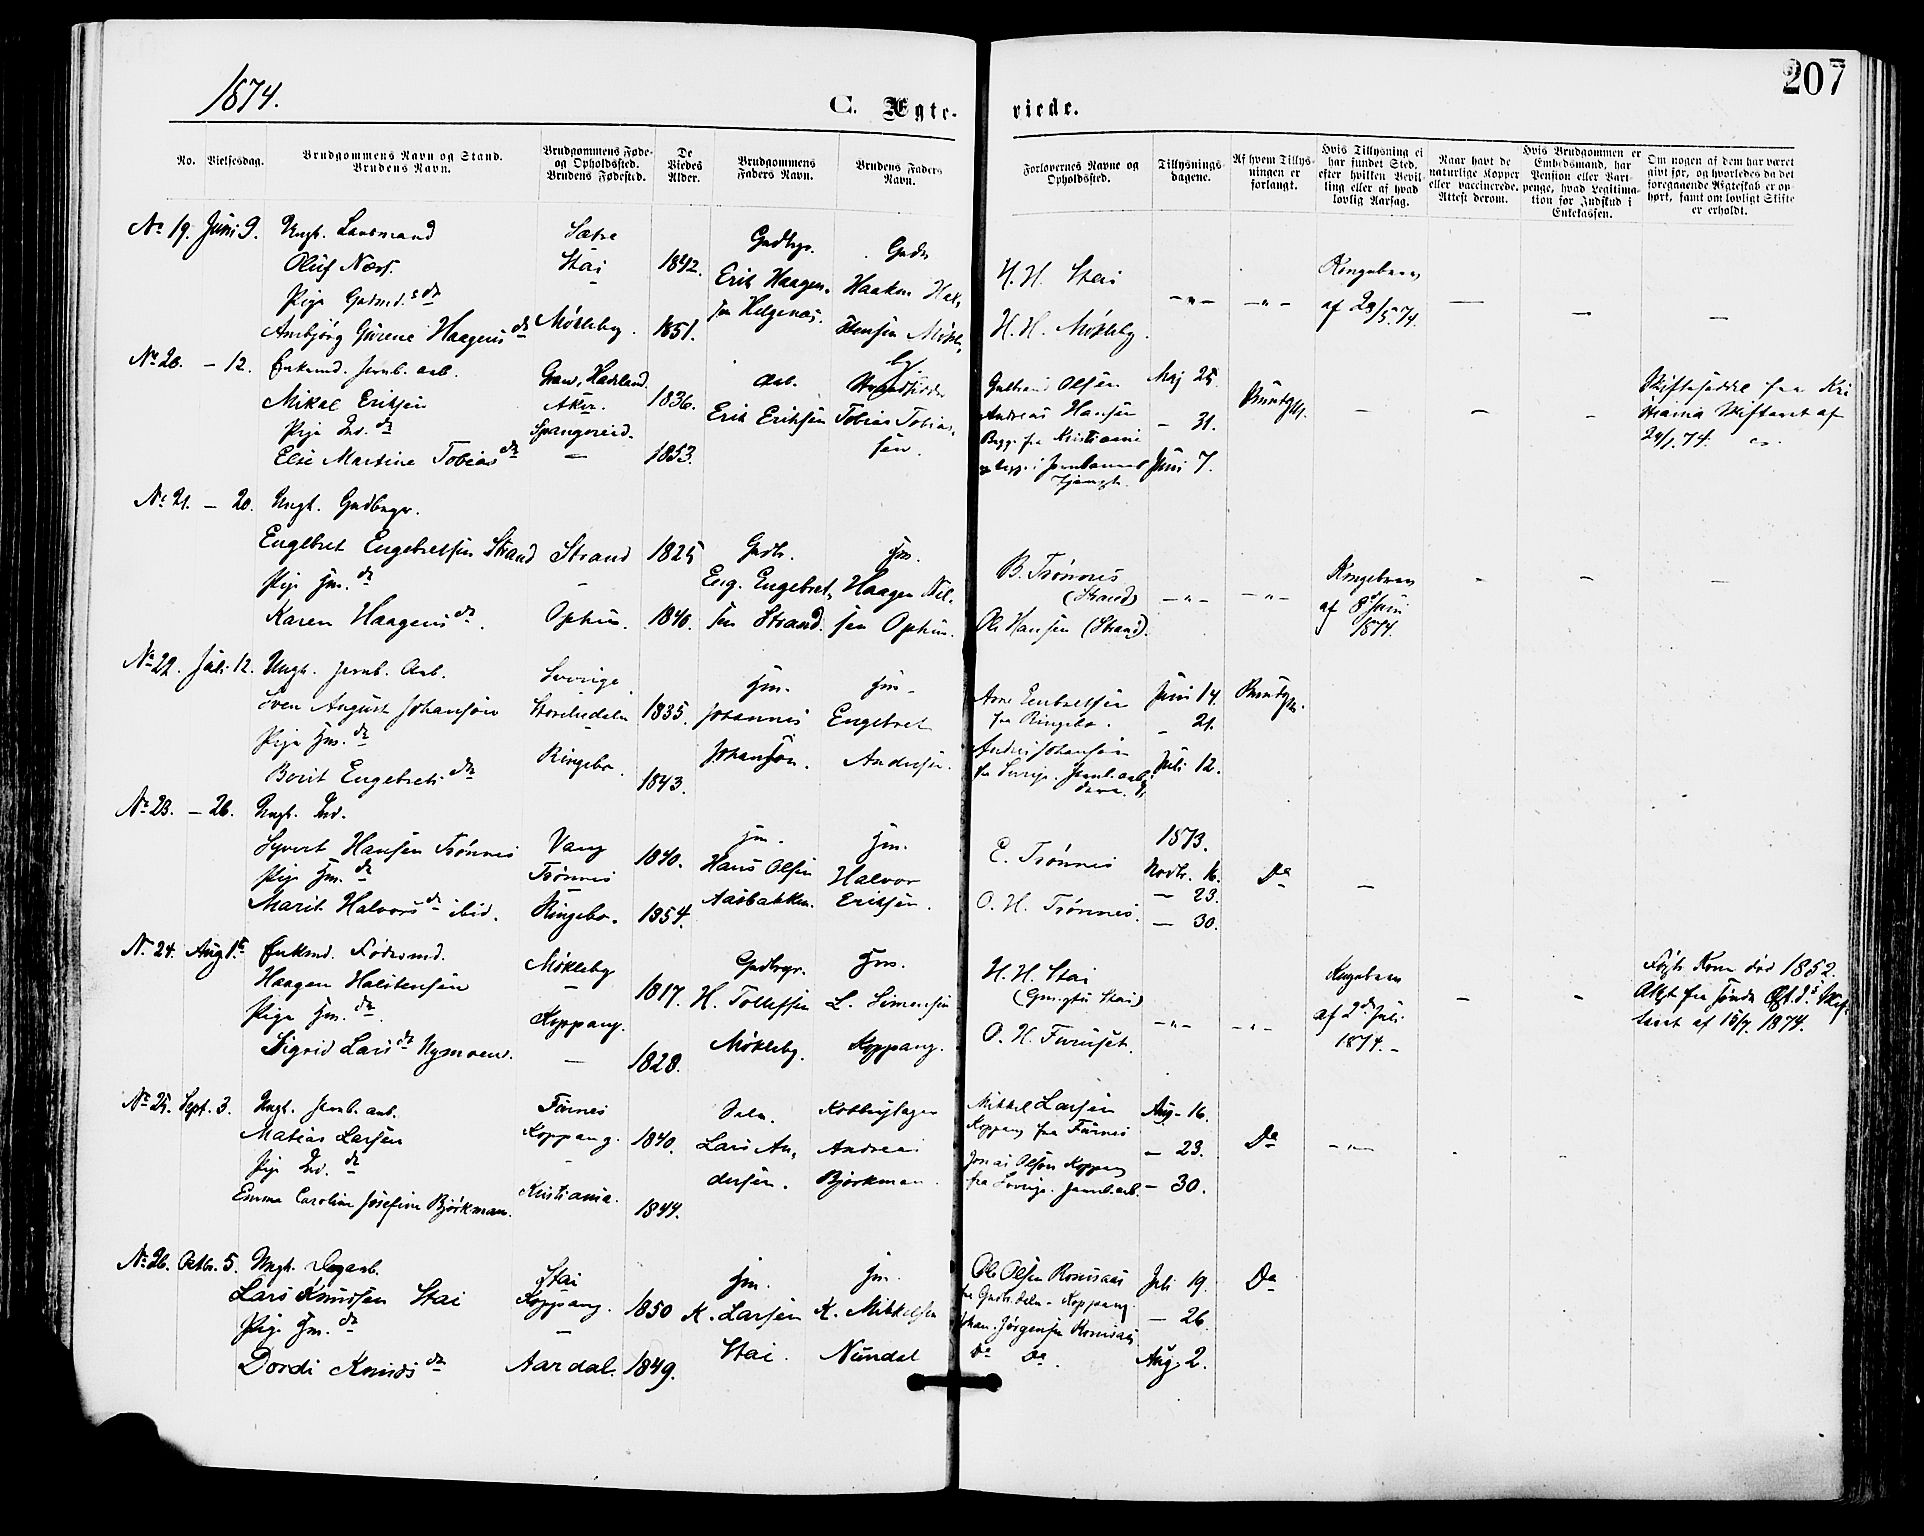 1874.
207
C. Ægte- viede.
No.
Vielsesdag.
Brudgommens Navn og Stand.
Brudens Navn.
Brudgommens Føde-
og Opholdssted.
Brudens Fødested.
De
Viedes
Alder.
Brudgommens
Faders Navn.
Brudens Faders
Navn.
Forlovernes Navne og
Opholdssted.
Tillysnings-
dagene.
Af hvem Tillys-
ningen er
forlangt.
Hvis Tillysning ei
har fundet Sted,
efter hvilken Bevil-
ling eller af hvad
lovlig Aarsag.
Naar havt de
naturlige Kopper
eller vaccinerede.
Attest derom.
Hvis Brudgommen er
Embedsmand, har
Pension eller Vart-
penge, hvad Legitima-
tion for Indskud i
Enkekassen.
Om nogen af dem har været
gift før, og hvorledes da det
foregaaende Ægteskab er op-
hørt, samt om lovligt Skifte
er erholdt.
No 19. Juni 9. Ungk. Landmand
Oluf Næss.
Pige Gadmd.s dr
Ambjørg Gurine Haagensdr
Sætre
Stai
Møkleby.
1842.
1851.
Gadbgr.
Erik Haagen-
sen Helgenæs.
Gadb
Haaken Hal-
stensen Møkle-
by.
H. H. Stai
H. H. Møkleby.
— " —
— " —
Kongebrev
af 29/5.74.
No 20. — 12. Enkemd. Jernb. arb.
Mikal Eriksen
Pige Ind. dr
Else Martine Tobiasdr
Gran, Hadeland.
Aker.
Spangereid.
1836.
1853.
Arb.
Erik Eriksen
Tobias Tobias-
sen.
Gulbrand Olsen
Andreas Hansen
Begge fra Kristiania
Maj 25.
— 31.
Juni 7.
Brudg.
Skifteseddel fra Kri
stiania Skifteret af
24/1.74.
No 21. — 20. Ungk. Gadbrgr.
Engebret Engebretsen Strand
Pige Hm. dr
Karen Haagensdr.
Strand
Ophus.
1825
1840.
Gadb.
Eng. Engebret-
sen Strand.
Hm.
Haagen Nil-
sen Ophus.
B. Trønnes
(Strand)
Ole Hansen (Strand).
— " —
— " —
Kongebrev
af 8de Juni
1874.
No 22. Juli 12. Ungk. Jernb. Arb.
Sven August Johanson
Pige Hm. dr
Borit Engebretsdr
Sverige
Ringebo.
1835.
1843.
Hm.
Johannes
Johanson.
Hm.
Engebret
Andersen.
Arne Embretsen
fra Ringebo.
Andreas Johansen
Juni 14.
— 21.
Juli 12.
Brudg.
No 23. — 26. Ungk. Ind.
Syvert Hansen Trønnes
Pige Hm. dr
Marit Halvorsdr ibid.
Vang
Trønnes
Ringebo.
1840.
1854.
Hm.
Hans Olsen
Aasbakken.
Hm.
Halvor
Eriksen.
E. Trønnes
O. H. Trønnes.
1873.
Novbr. 16.
— 23.
— 30.
Do
No 24. Aug 1ste Enkemd. Føderaadmd.
Haagen Halstensen
Pige Hm. dr
Sigrid Larsdr Nymoen.
Møkleby
Koppang.
1817.
1828.
Gadbrgr.
H. Tollefsen
Møkleby.
Hm.
L. Simensen
Koppang.
H. H. Stai
O. H. Furuset.
— " —
— " —
Kongebrev
af 2den Juli
1874.—
Første Kone død 1852.
No 25. Sept. 3. Ungk. Jernb. arb.
Matias Larsen
Pige Ind. dr
Emma Caroline Josefine Bjørkman.
Furnes
Koppang.
Kristiania.
1840.
1844.
Lars An-
dersen.
Andreas
Bjørkman.
Mikkel Larsen
Koppang fra Furnes
Jonas Olson Koppang
fra Sverige. Jernb.arb.
Aug. 16.
— 23.
— 30.
Do
No 26. Octbr. 5. Ungk. Dagarb.
Lars Knudsen Stai
Pige Hm. dr
Dordi Knudsdr
Stai
Koppang.
Aardal.
1850
1849.
Hm.
K. Larsen
Stai.
Hm.
K. Mikkelsen
Nundal
Ole Olsen Romsaas
fra Gudb.dalen - Koppang.
Johan Jørgensen Romsaas
Do Do.
Juli 19.
— 26.
Aug. 2.
Do